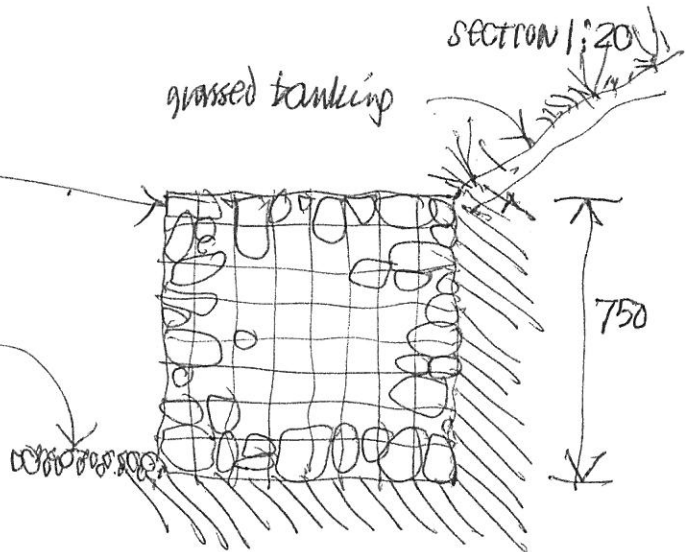 SECTION 1:20
grassed banking
750